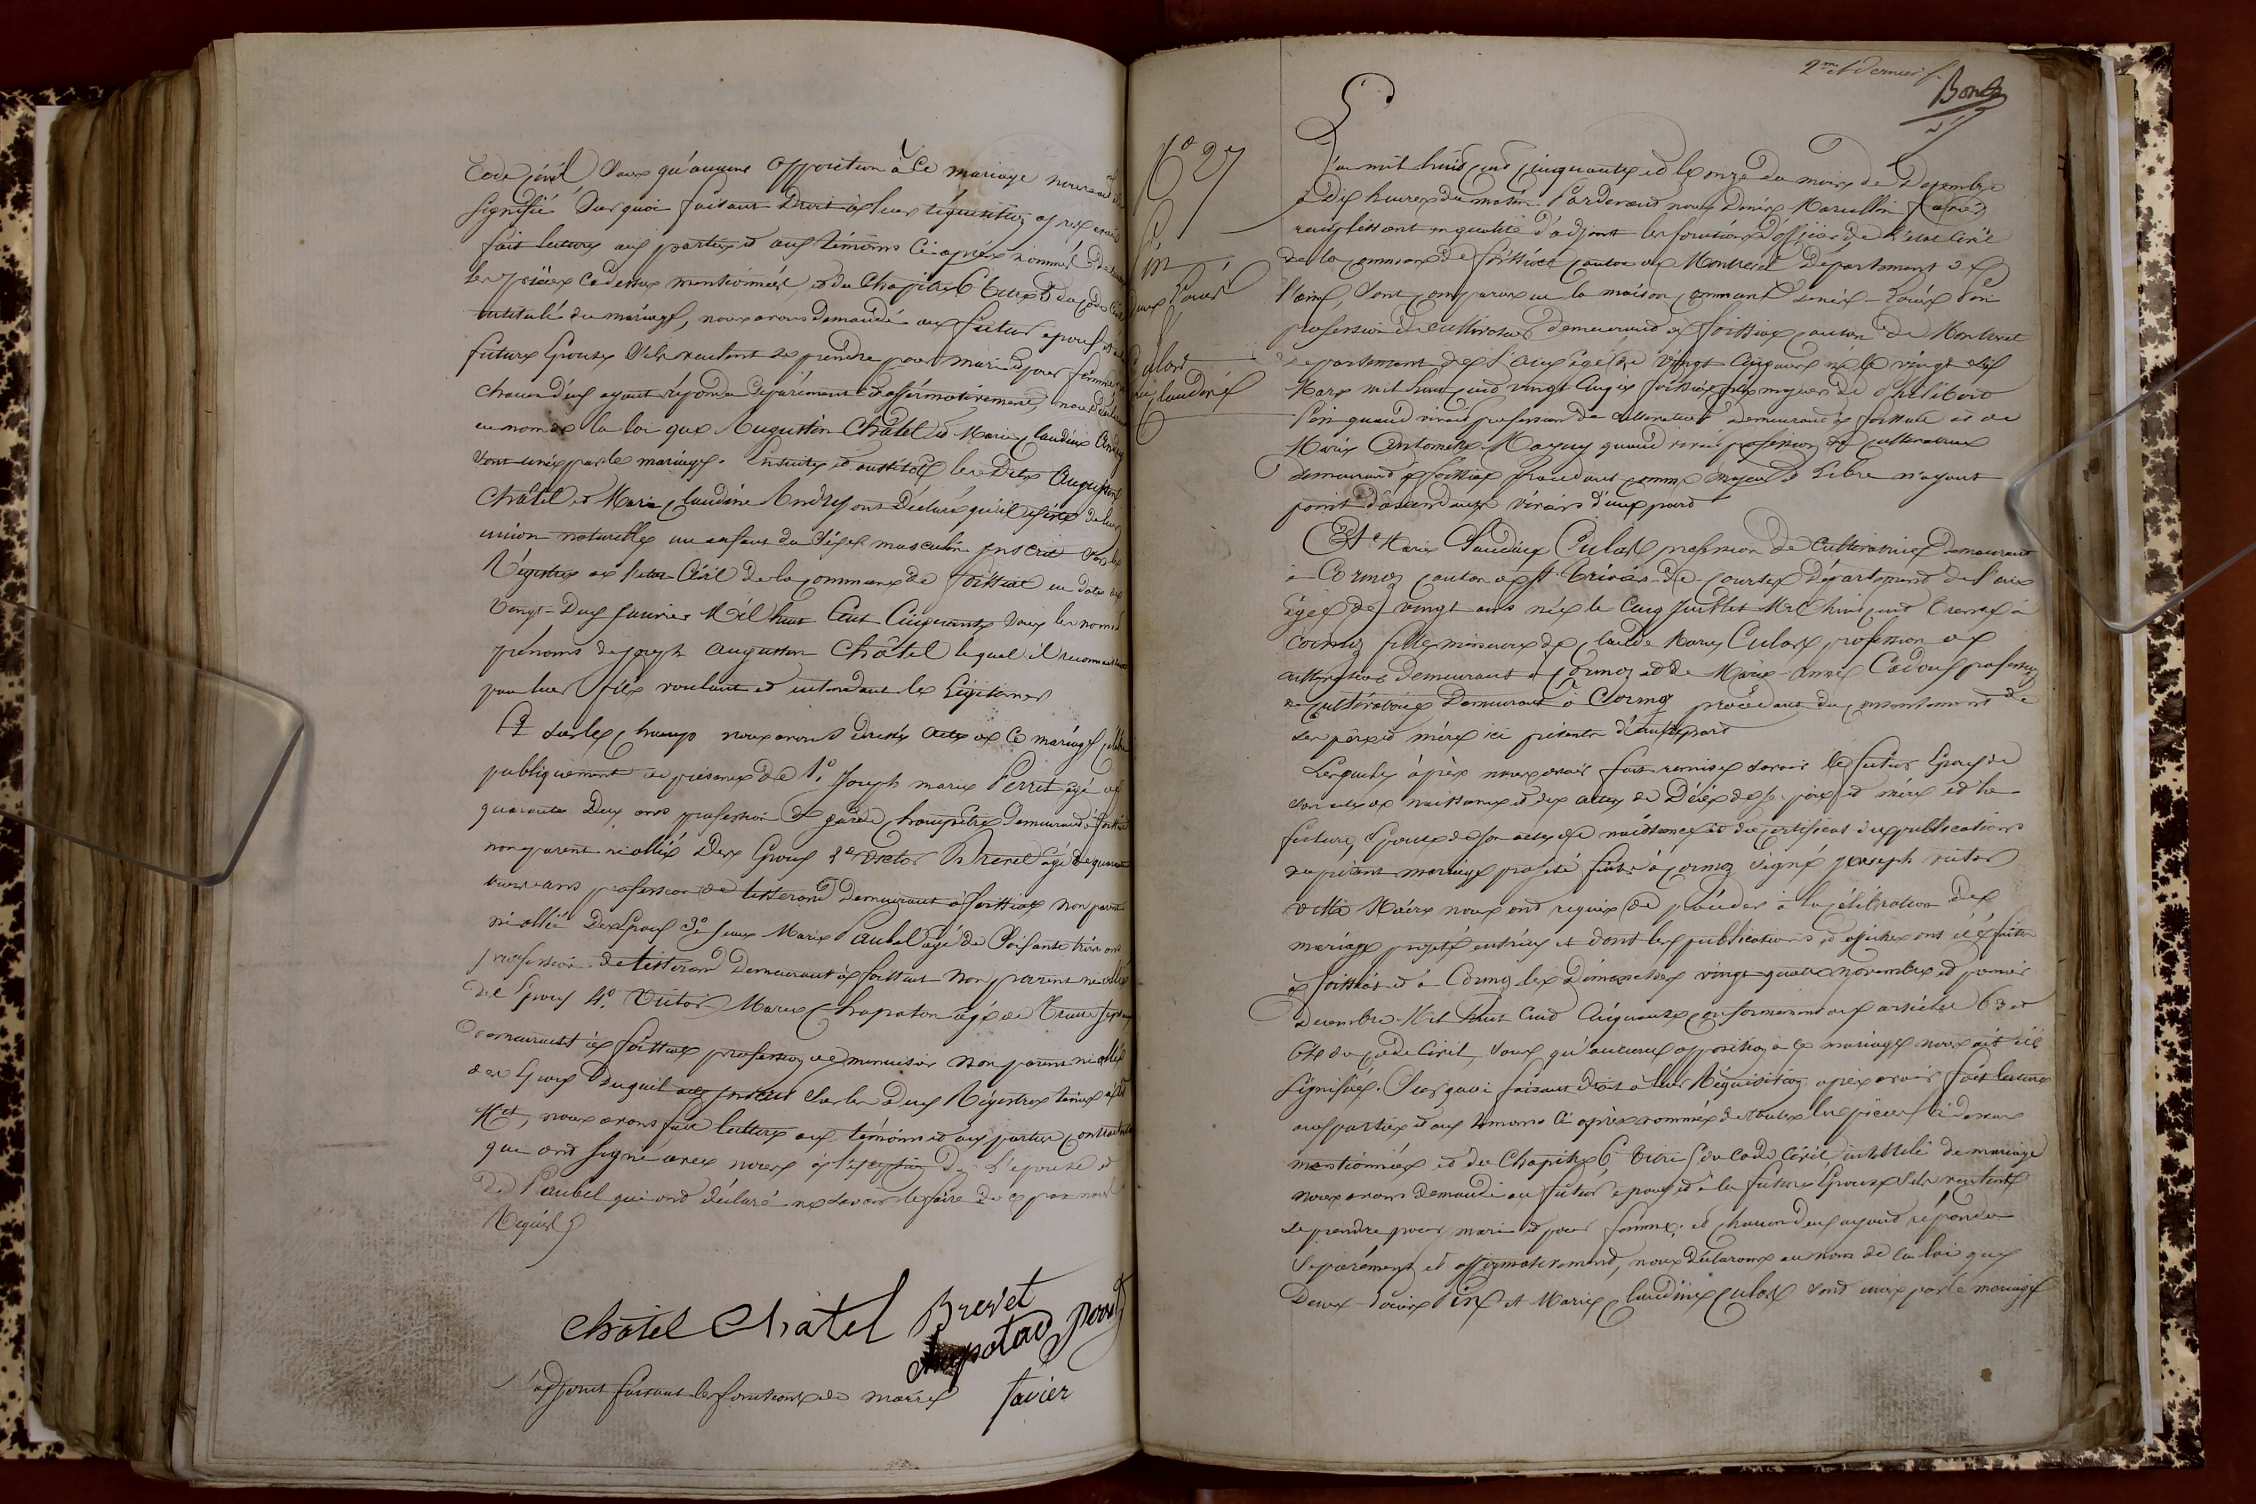 Code civil Sans qu'aucune opposition à Ce mariage nous ait été
signifié Sur quoi faisant Droit à leur réquisition après avoir
fait lecture aux parties et aux témoins Ci après nommés de toutes
les pièces Ci dessus mentionnées, et du Chapitre 6 titre 5 du Code Civil
intitulé du mariage, nous avons demandé au futur epoux et à la
future Epouse S'ils veulent se prendre pour mari et pour femme
chacun d'eux ayant répondu Séparément et affirmativement, nous déclarons
au nom de la loi que Augustin Châtel et Marie Claudine Andrey
sont unis par le mariage. Ensuite et aussitôt les Dits Augustin
Châtel et Marie Claudine Andrey ont Déclaré qu'il existe de leur
union naturelle un enfant du Sexe masculin inscrit sur les
Régistres de l'etat Civil de la commune de foissiat en date du
vingt-Deux janvier Mil huit Cent Cinquante sous les noms
prénoms de joseph augustin Châtel lequel il reconnaissent
pour leur fils voulant et entendant le légitimer
Et sur les champs nous avons dressé acte de Ce mariage célébré
publiquement en présence de 1º Joseph marie Perret agé de
quarante Deux ans profession de garde champêtre Demeurant à foissiat
non parent ni allié Des Epoux 2º victor Brevet agé de quarante
ans profession de tisserand demeurant à foissiat Non parent
ni allié Des Epoux 3º Marie Paubel agé de Soisante trois ans
profession de tisserand Demeurant à foissiat Non parent ni allié
des Epoux 4º Victor Marie Chapaton agé de Trente sept ans
Demeurant à foissiat profession de menuisier Non parent ni allié
des Epoux Duquel acte inscrit Sur les deux Régistres tenus
nous avons fait lecture aux témoins et aux parties contractantes
qui ont signé avec nous à l'exception de L'épouse et
de Paubel qui ont déclaré ne savoir le faire de ce par nous
Requis
Châtel Châtel Brevet
Chapotad Perret
l'adjoint faisant les fonctions de maire Favier
2me et dernier f.
Bont
Nº 27
Pin
Denis Louis
&
Culas
Mie Claudine
L'an mil huit cent cinquante et le onze du mois de Decembre
à dix heures du matin. Pardevant nous Denis Marcellin Favier
remplissant en qualité d'adjoint les fonctions d'officier de l'etat Civil
de la commune de foissiat canton de Montrevel Département de
l'ain, Sont comparus en la maison commune Denis-Louis Pin
profession de cultivateur demeurant à foissiat canton de Montrevel
département de l'ain agé de vingt Cinq ans né le vingt six
Mars mil huit cent vingt Cinq à foissiat fils majeur de Philibert
Pin quand vivait profession de cultivateur demeurant à foissiat et de
Marie Antoinette Mazuy quand vivait profession de cultivatrice
demeurant à foissiat procédant comme majeur et Libre n'ayant
point d'ascendants vivans d'une part
Et Marie Claudine Culas profession de Cultivatrice demeurant
à Cormoz canton de St Trivier-de-Courtes Département de l'ain
agée de vingt ans née le Cinq Juillet Mil huit cent trente à
Cormoz fille mineure de Claude Marie Culas profession de
cultivateur demeurant à Cormoz et de Marie-Anne Cadoux profession
de cultivatrice Demeurant à Cormoz procédant du consentement de
ses père et mère ici présents d'autre part
Lesquels après nous avoir fait remise savoir le futur Epoux de
son acte de naissance et des actes de Décès de Ses père et mère et la
future Epouse de son acte de naissance et du certificat des publications
du présent mariage projeté faites à Cormoz signé joseph victor
Maire nous ont requis de procéder à la célébration du
mariage projeté entr'eux et dont les publications et affiches ont été faites
à foissiat et à Cormoz les Dimanches vingt quatre novembre et premier
Decembre Mil huit Cent Cinquante conformément aux articles 63 et
64 du Code Civil, Sans qu'aucune opposition à ce mariage nous ait été
signifiée. Sur quoi faisant droit à leur Réquisition après avoir fait lecture
aux parties et aux témoins Ci après nommés de toutes les pièces Ci dessus
mentionnées et du Chapitre 6 titre 5 du Code Civil intitulé de mariage
nous avons demandé au futur epoux et à la future Epouse S'ils veulent
se prendre pour mari et pour femme, et chacun d'eux ayant répondu
Séparément et affirmativement, nous déclarons au nom de la loi que
Denis-Louis Pin et Marie Claudine Culas sont unis par le mariage